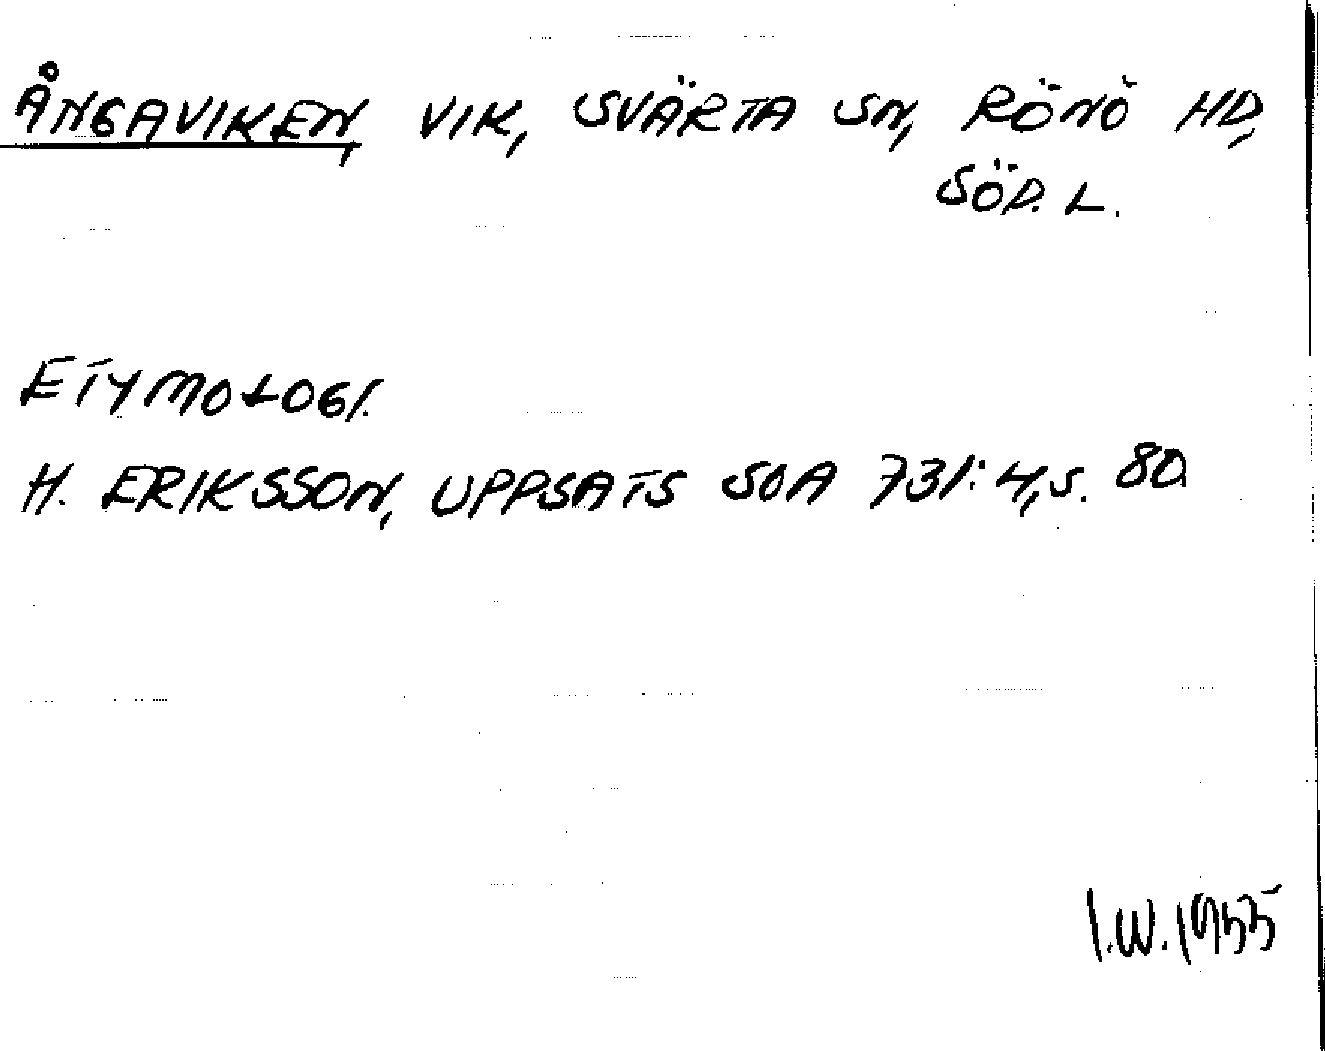 ÅNGAVIKEN, VIK, SVÄRTA SN, RÖNÖ HD,
SÖD. L.
ETYMOLOGI.
H. ERIKSSON, UPPSATS SOA 731:4, S. 80.
I.W. 1955